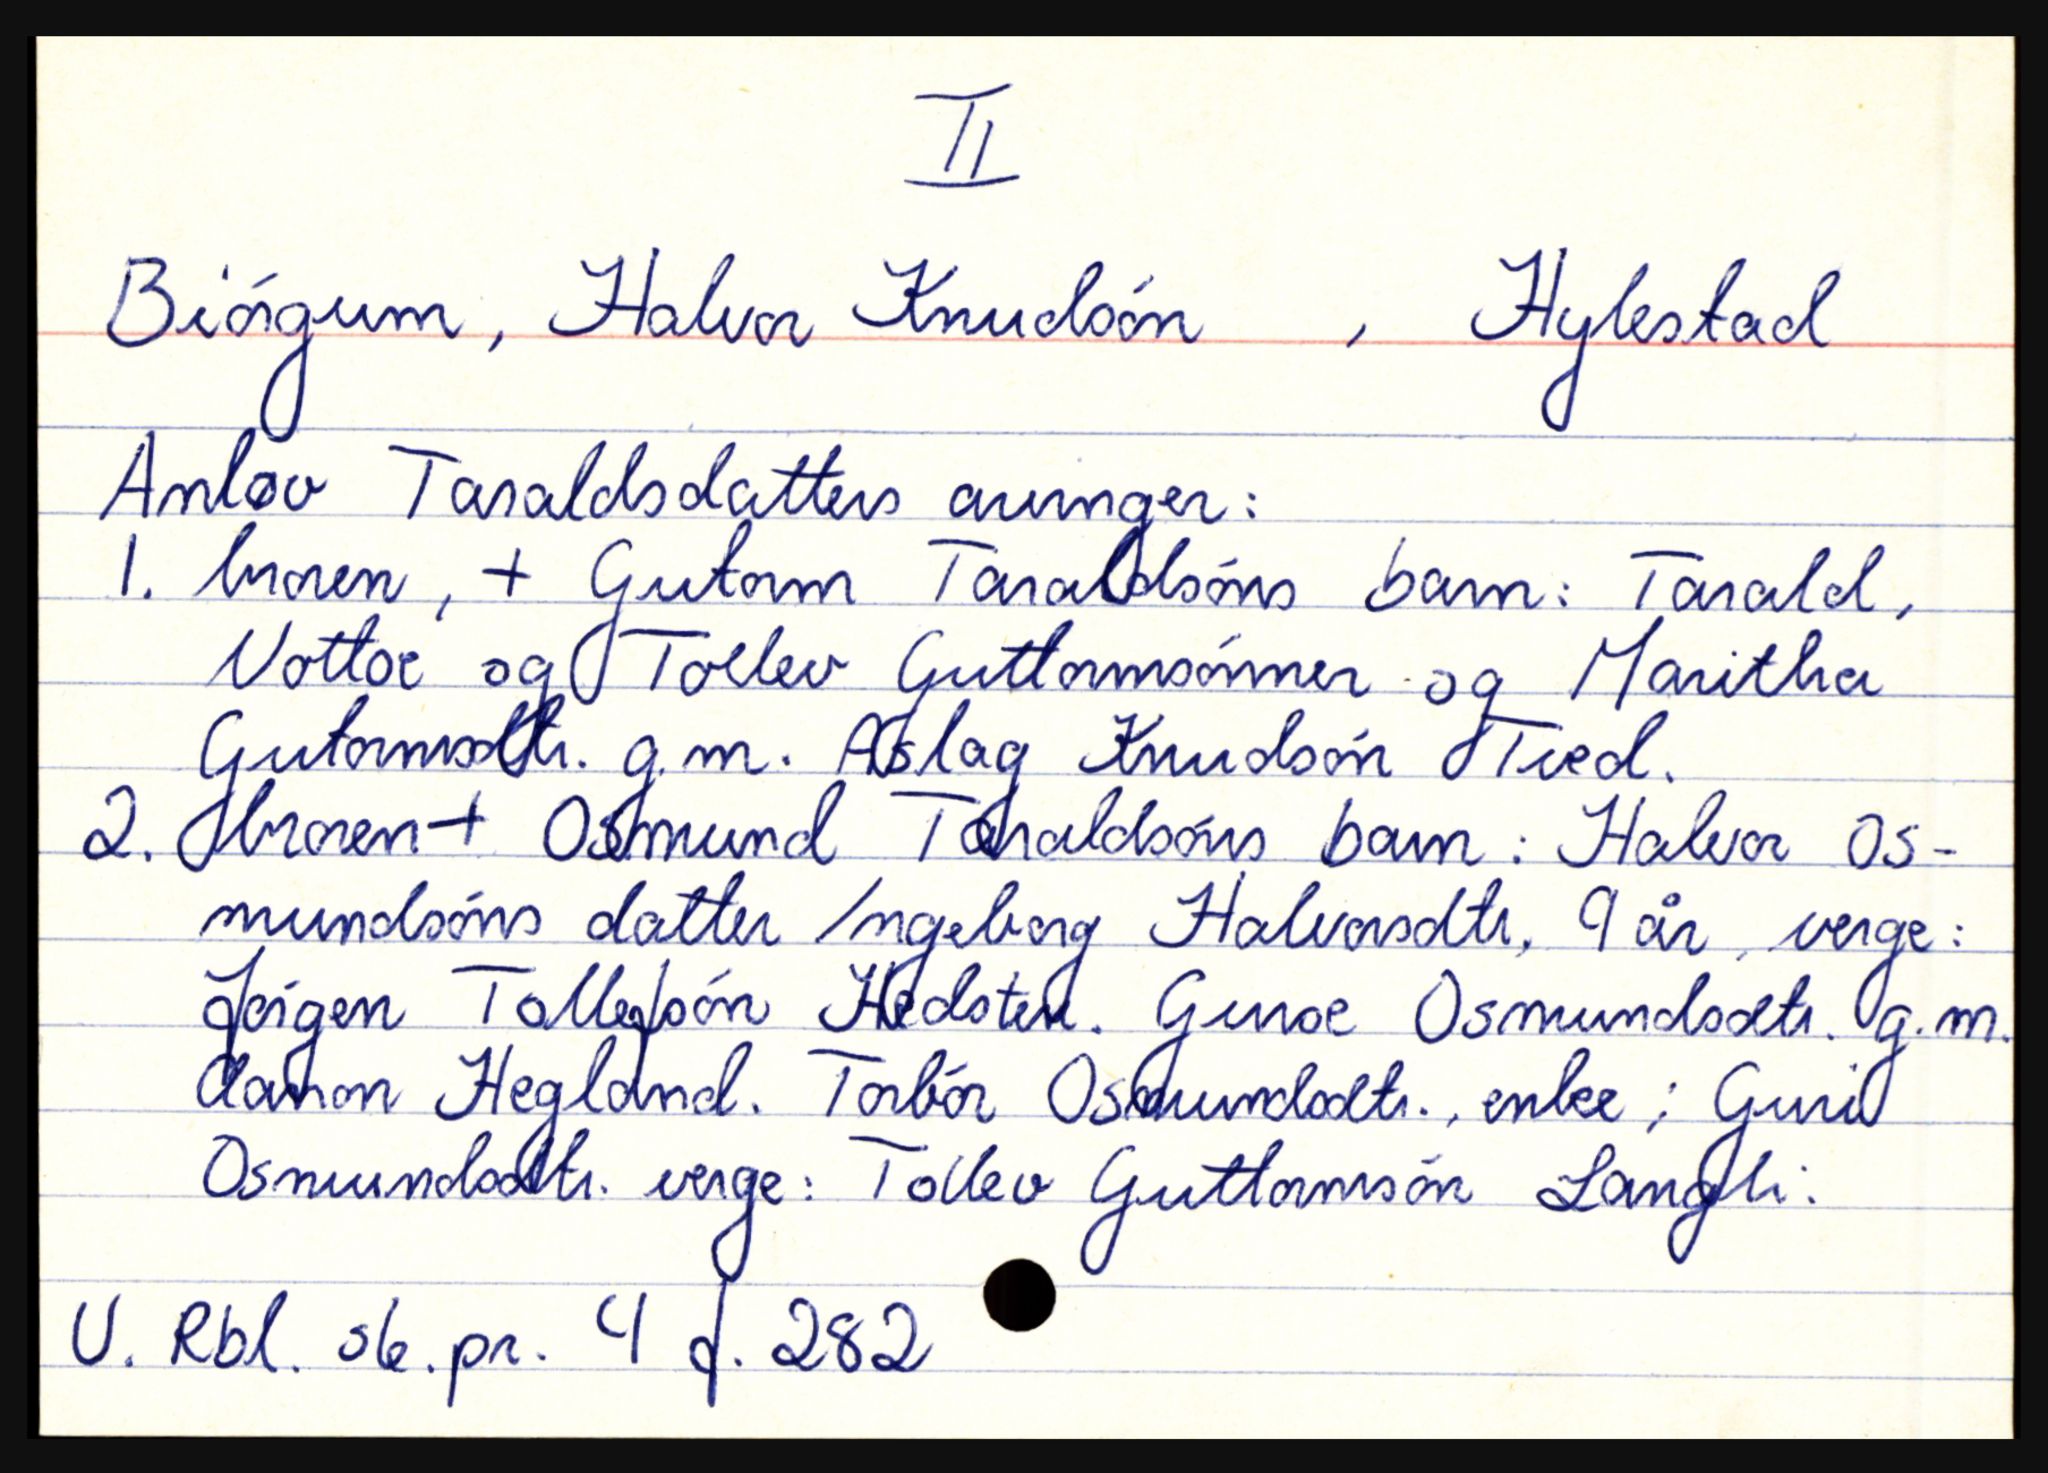 II
Biórgum, Halvor Knudsón , Hylestad
Anløv Taraldsdatters arvinger:
1. broren, + Gutorm Taraldsóns barn: Tarald,
Vottoe og Tollev Guttormsónner og Maritha
Gutormsdtr. g.m. Aslag Knudsón Tved.
2. broren + Osmund Taraldsóns barn: Halvor Os-
mundsóns datter Ingeborg Halvorsdtr, 9 år, verge:
Jórgen Tollefsón Hedsten. Guroe Osmundsdtr. g.m.
Aanon Hegland. Torbór Osmundsdtr., enke; Guri
Osmundsdtr. verge: Tollev Guttormsón Langli.
U. Rbl. sk.pr. 4 f. 282